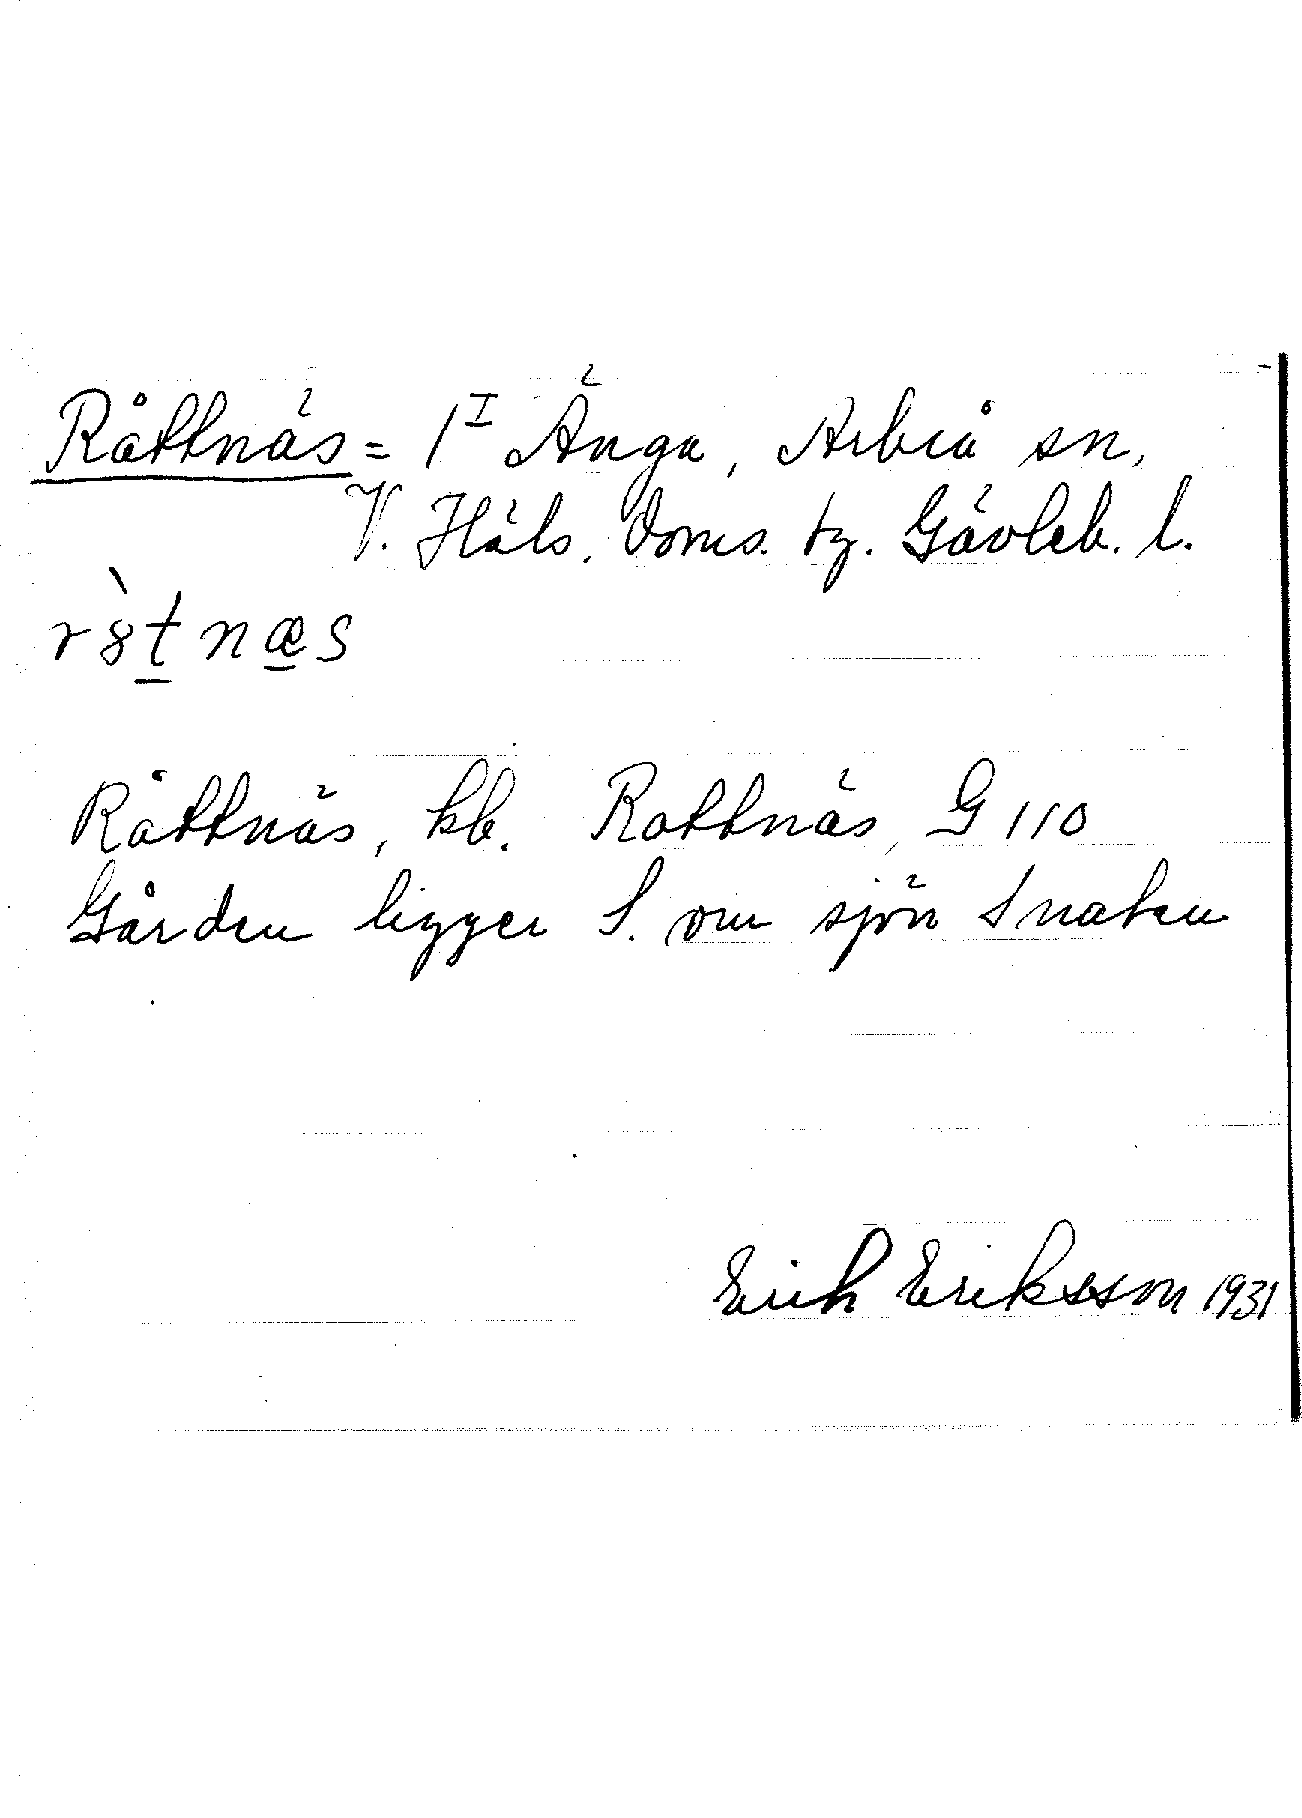 Råttnäs = 1 I Änga, Arbrå sn,
V. Häls. Doms. tg. Gävleb. l.
r8̀tnæs
Råttnäs, kb. Rottnäs, G 110
Gården ligger S. om sjön Snaten
Erik Eriksson 1931